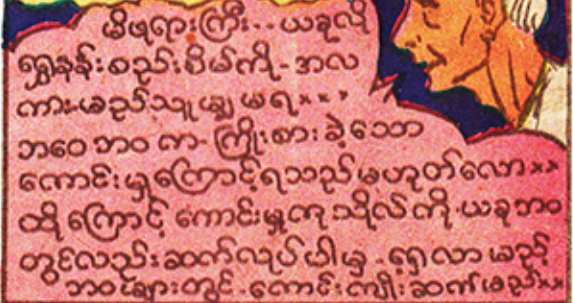 မိဖုရားကြီး-- ယခုလို
ရွှေနန်းစည်းစိမ်ကို-အလ
ကားမည်သူမျှ မရ×××
ဘဝေ ဘဝ က-ကြိုးစားခဲ့သော
ကောင်းမှုကြောင့်ရသည်မဟုတ်လော××
ထို့ကြောင့် ကောင်းမှုကုသိုလ်ကို ယခုဘဝ
တွင်လည်းဆက်လုပ်ပါမှ-ရှေ့လာမည့်
ဘဝများတွင်-ကောင်းကျိုးဆက်မည်××